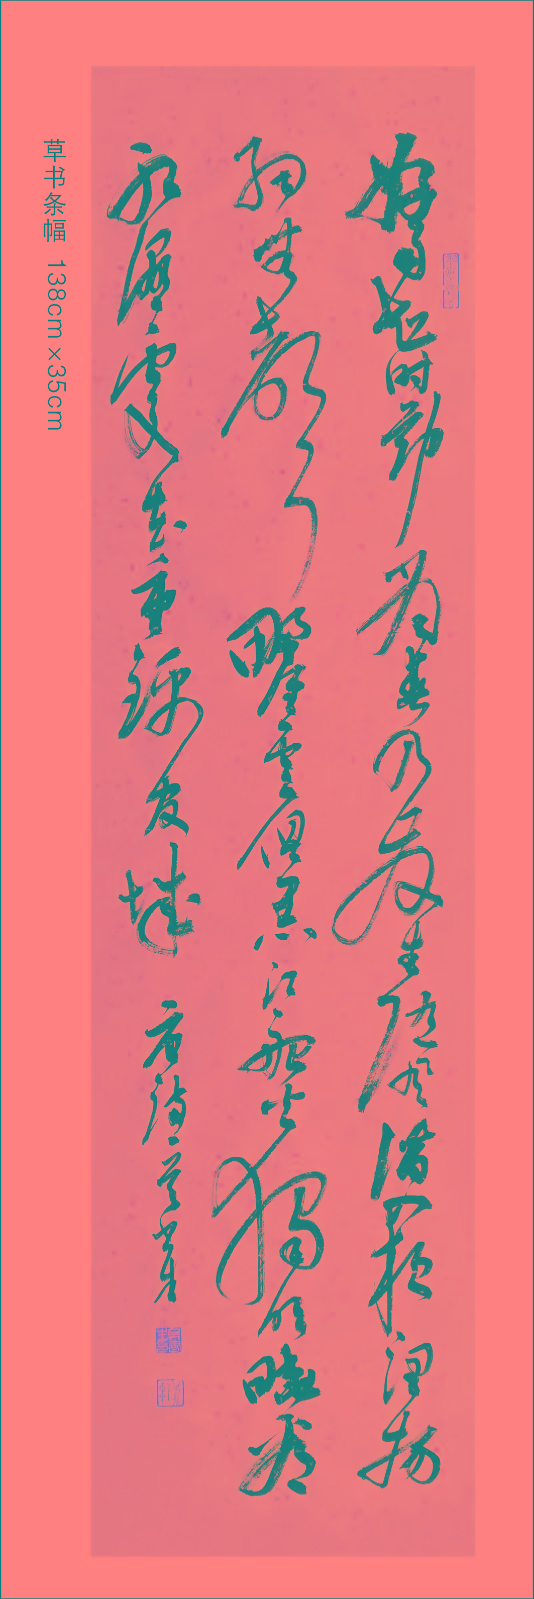 好雨知时节当春乃发生随风潜入夜润物
细无声野径云俱黑江船火独明晓看
红湿处花重锦官城
唐诗
草书条幅 138cm×35cm